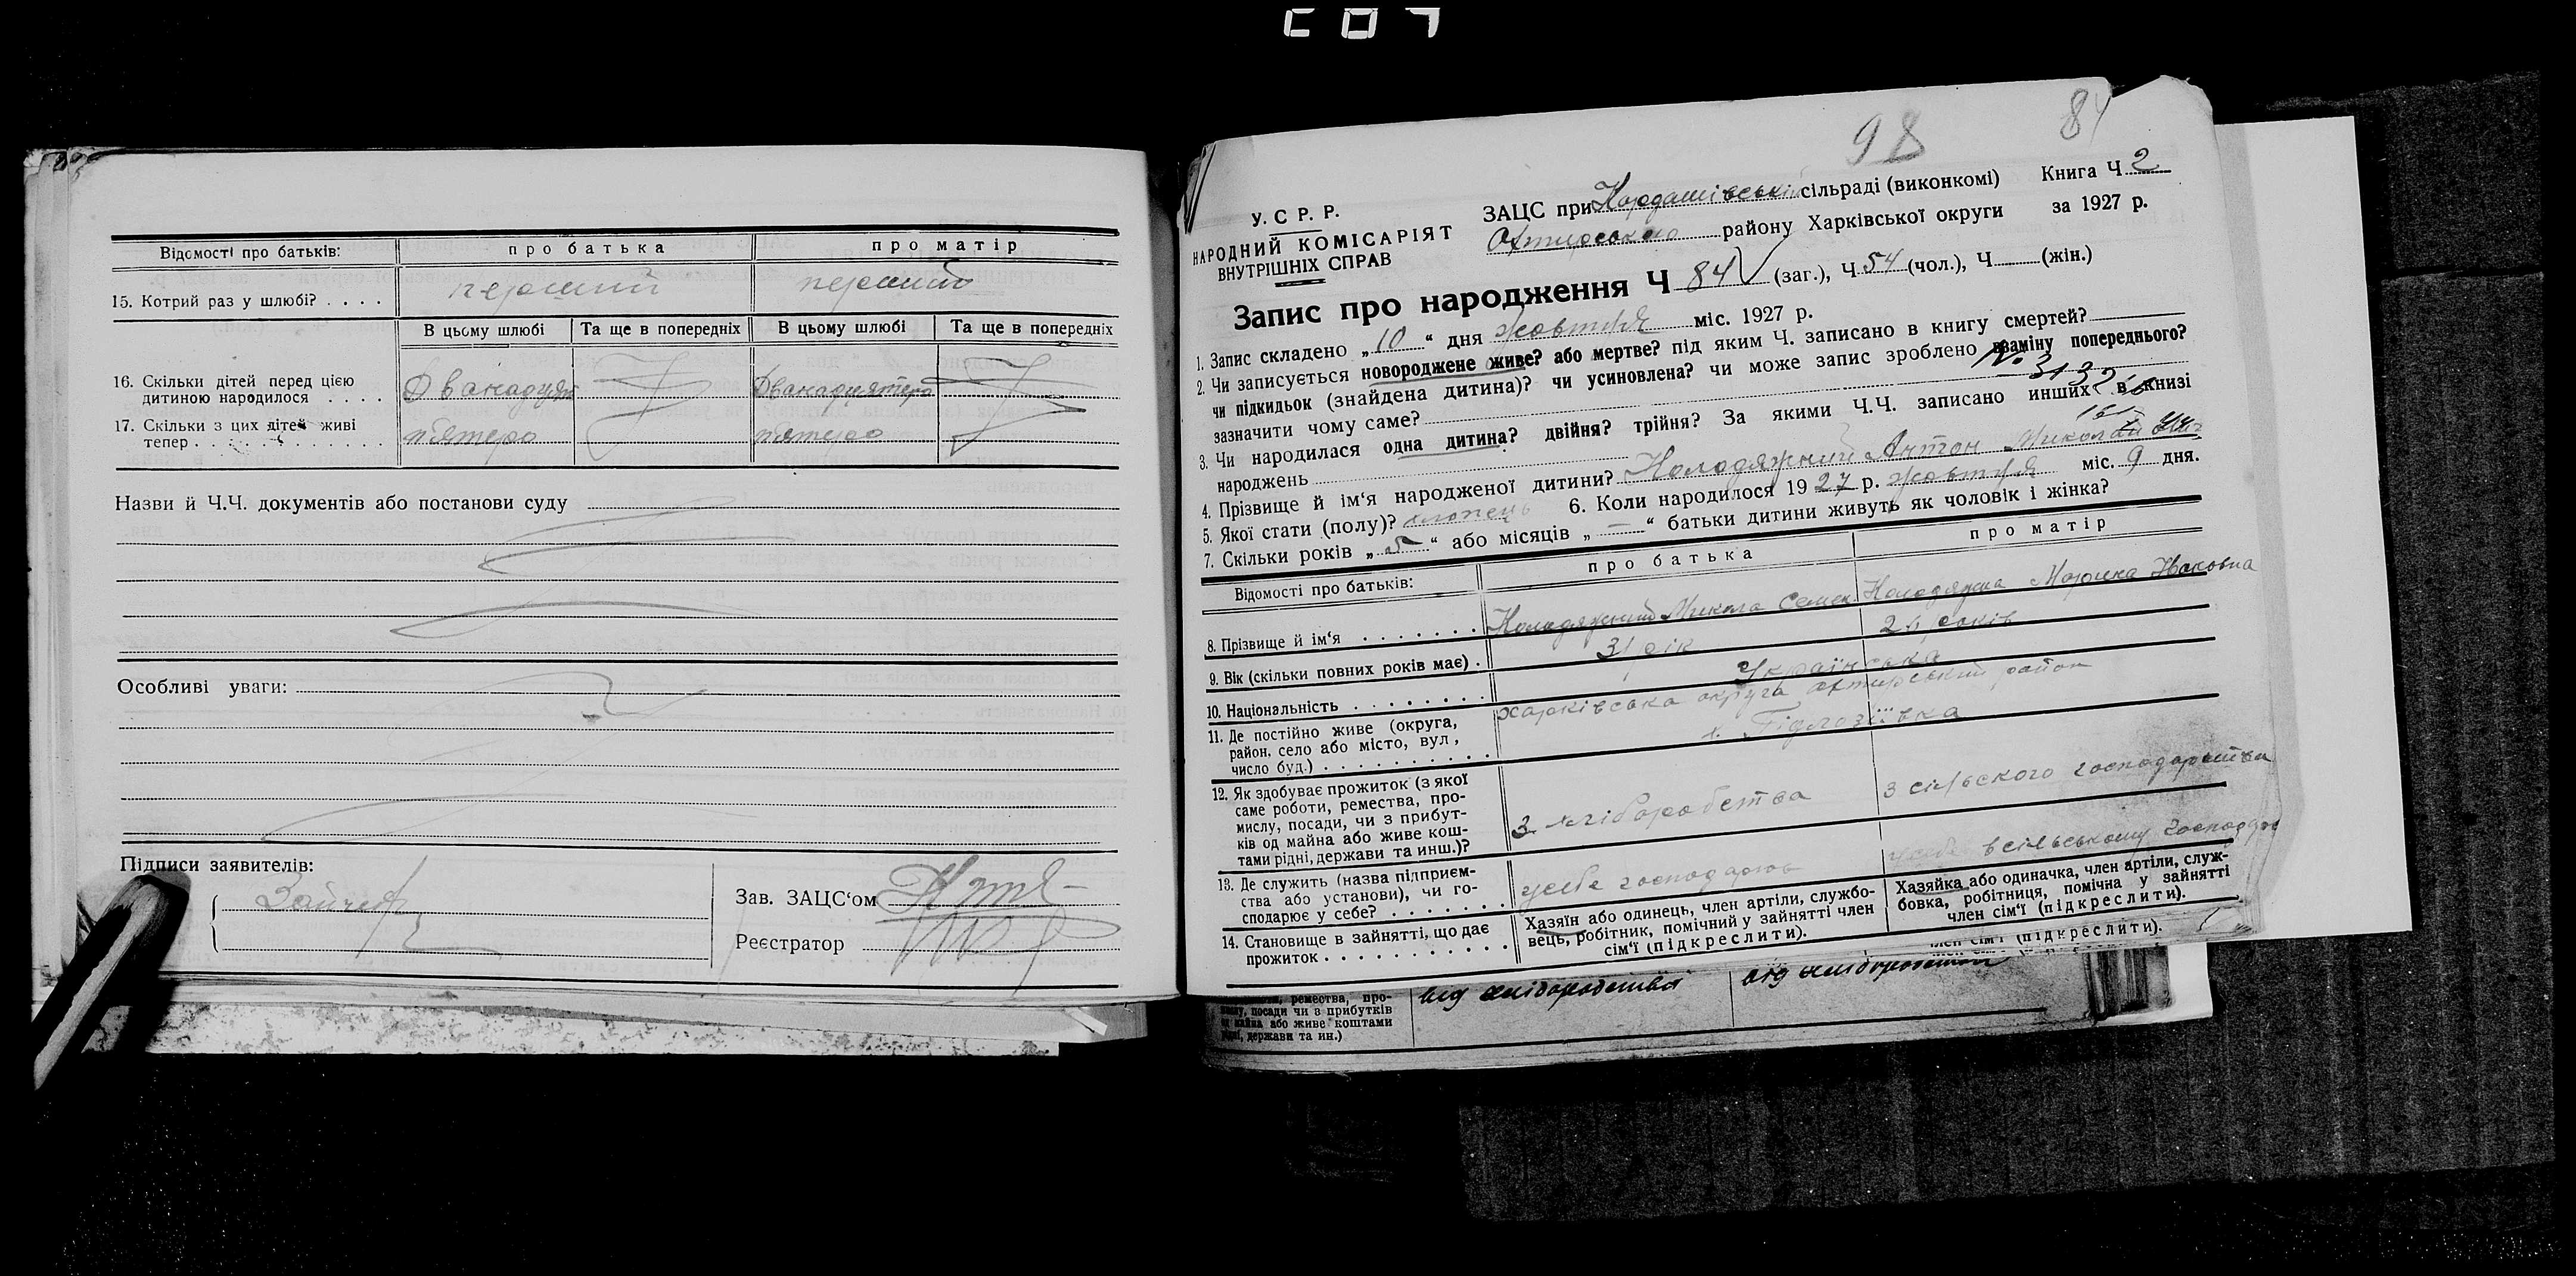 Відомості про батьків: про батька про матір
15. Котрий раз у шлюбі? . . . . перший перший
В цьому шлюбі Та ще в попередніх В цьому шлюбі Та ще в попередніх
16. Скільки дітей перед цією
дитиною народилося . . . . Дванадцят Дванадцятеро
17. Скільки з цих дітей живі
тепер . . . . . . . . . . . . п'ятеро п'ятеро
Назви й Ч.Ч. документів або постанови суду
Особливі уваги:
Підписи заявителів:
Зав. ЗАЦС‘ом
Реєстратор
98 84
У. С Р. Р.
НАРОДНИЙ КОМІСАРІЯТ
ВНУТРІШНІХ СПРАВ
ЗАЦС при Кардашівській сільраді (виконкомі) Книга Ч 2
Охтирського району Харківської округи за 1927 р.
Запис про народження Ч 84 (заг.), Ч 54 (чол.), Ч (жін.)
1. Запис складено „10“ дня жовтня міс. 1927 р.
2. Чи записується новороджене живе? або мертве? під яким Ч. записано в книгу смертей?
чи підкидьок (знайдена дитина)? чи усиновлена? чи може запис зроблено взаміну попереднього?
зазначити чому саме?
№ 3132
3. Чи народилася одна дитина? двійня? трійня? За якими Ч.Ч. записано инших в книзі
народжень
4. Прізвище й ім‘я народженої дитини? Колодяжний Антон Миколай
5. Якої стати (полу)? хлопець 6. Коли народилося 1927 р. жовтня міс. 9 дня.
7. Скільки років „ “ або місяців „–“ батьки дитини живуть як чоловік і жінка?
Відомості про батьків: про батька про матір
8. Прізвище й ім‘я . . . . . . . Колодяжний Микола Семен Колодяжна Марина Яковна
9. Вік (скільки повних років має) . 31 рік років
10. Національність . . . . . . . Українська
11. Де постійно живе (округа,
район, село або місто, вул,
число буд.) . . . . . . . . . . Харківська округа Охтирський район
12. Як здобуває прожиток (з якої
саме роботи, ремества, про-
мислу, посади, чи з прибут-
ків од майна або живе кош-
тами рідні, держави та инш.)? З хліборобства з сільского господарства
13. Де служить (назва підприєм-
ства або установи), чи го-
сподарює у себе? . . . . . . . усебе господарює усебе всільському господар
14. Становище в зайнятті, що дає
прожиток . . . . . . . . . .
Хазяїн або одинець, член артіли, службо-
вець, робітник, помічний у зайнятті член
сім‘ї (підкреслити).
Хазяйка або одиначка, член артіли, служ-
бовка, робітниця, помічна у зайнятті
член сім‘ї (підкреслити).
член сім‘ї (підкреслити).
ремества, про-
посади чи з прибутків
майна або живе коштами
держави та ин.)
від хліборобства від хліборобства